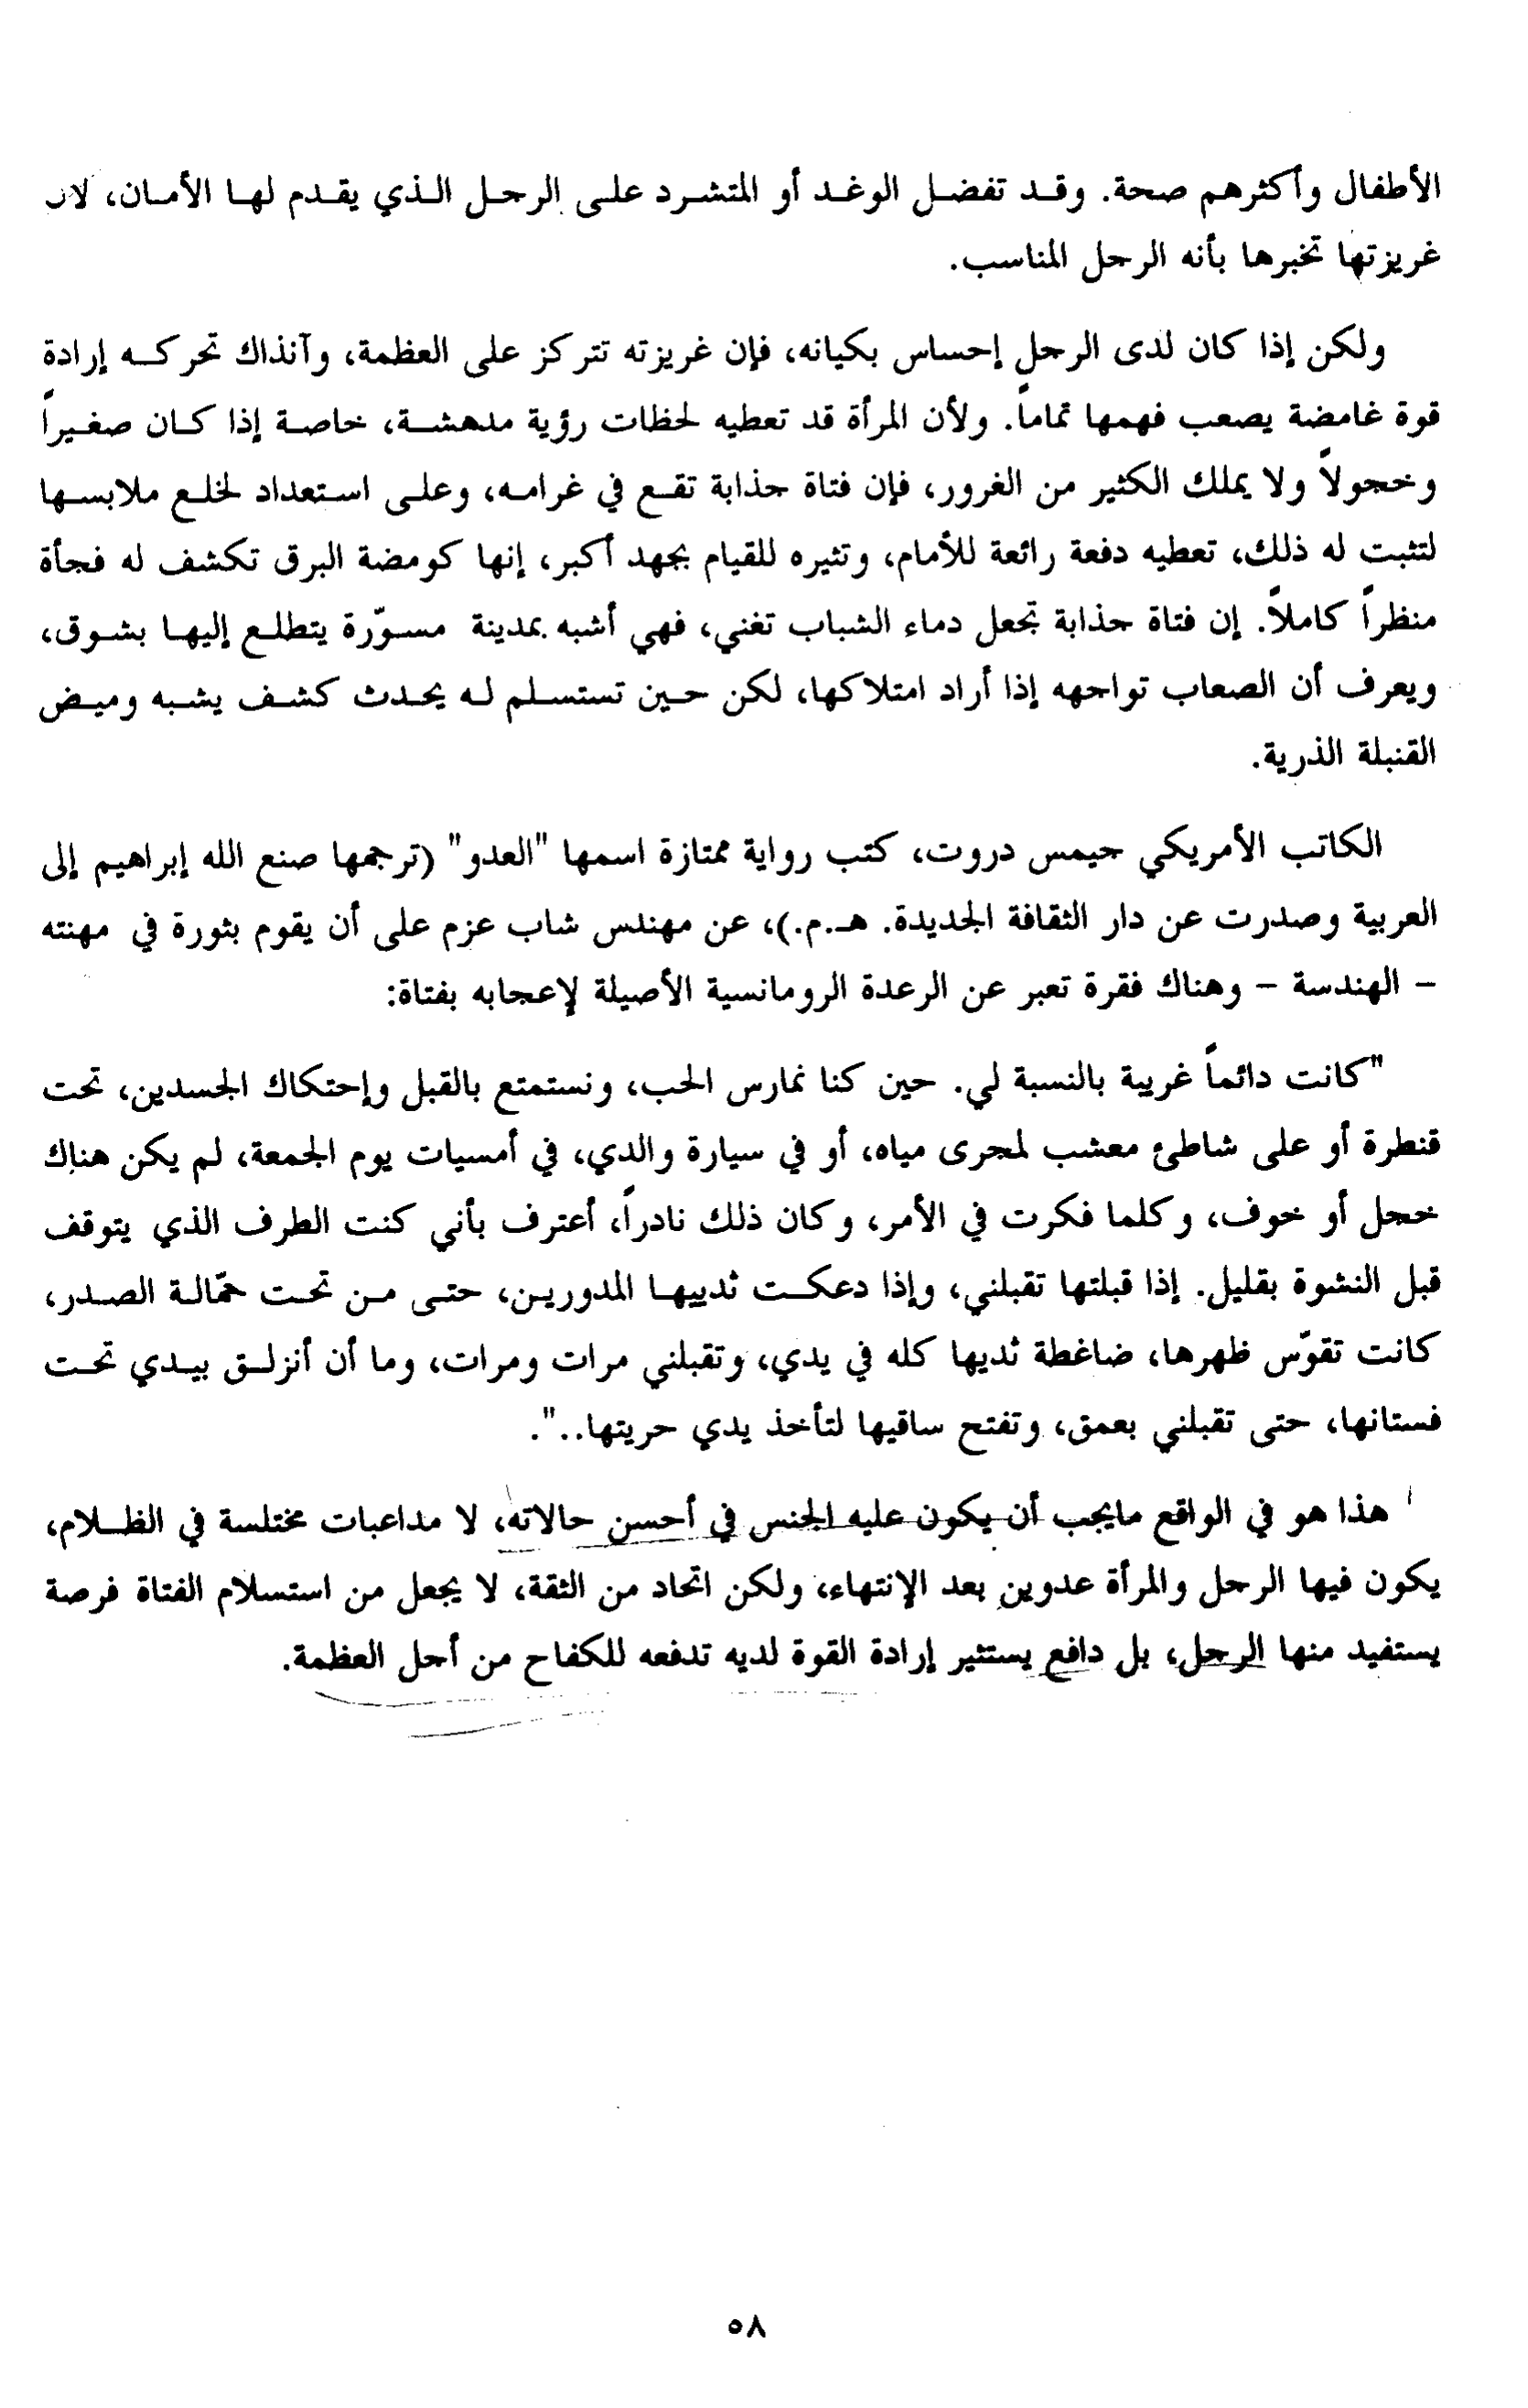 الأطفال وأكثرهم صحة. وقد تفضل الوغد أو المتشرد على الرجل الذي يقدم لها الأمان، لان
غريزتها تخبرها بأنه الرجل المناسب.
ولكن إذا كان لدى الرجل إحساس بكيانه، فإن غريزته تتركز على العظمة، وآنذاك تحركه إرادة
قوة غامضة يصعب فهمها تماماً. ولأن المرأة قد تعطيه لحظات رؤية مدهشة، خاصة إذا كان صغيراً
وخجولاً ولا يملك الكثير من الغرور، فإن فتاة جذابة تقع في غرامه، وعلى استعداد لخلع ملابسها
لتثبت له ذلك، تعطيه دفعة رائعة للأمام، وتثيره للقيام بجهد أكبر، إنها كومضة البرق تكشف له فجأة
منظراً كاملاً. إن فتاة جذابة تجعل دماء الشباب تغني، فهي أشبه بمدينة مسوّرة يتطلع إليها بشوق،
ويعرف أن الصعاب تواجهه إذا أراد امتلاكها، لكن حين تستسلم له يحدث كشف يشبه وميض
القنبلة الذرية.
الكاتب الأمريكي جيمس دروت، كتب رواية ممتازة اسمها "العدو" (ترجمها صنع الله إبراهيم إلى
العربية وصدرت عن دار الثقافة الجديدة. هـ.م.)، عن مهندس شاب عزم على أن يقوم بثورة في مهنته
– الهندسة – وهناك فقرة تعبر عن الرعدة الرومانسية الأصيلة لإعجابه بفتاة:
"كانت دائماً غريبة بالنسبة لي. حين كنا نمارس الحب، ونستمتع بالقبل وإحتكاك الجسدين، تحت
قنطرة أو على شاطئ معشب لمجرى مياه، أو في سيارة والدي، في أمسيات يوم الجمعة، لم يكن هناك
خجل أو خوف، وكلما فكرت في الأمر، وكان ذلك نادراً، أعترف بأني كنت الطرف الذي يتوقف
قبل النشوة بقليل. إذا قبلتها تقبلني، وإذا دعكت ثدييها المدورين، حتى من تحت حمّالة الصدر،
كانت تقوّس ظهرها، ضاغطة ثديها كله في يدي، وتقبلني مرات ومرات، وما أن أنزلق بيدي تحت
فستانها، حتى تقبلني بعمق، وتفتح ساقيها لتأخذ يدي حريتها..".
هذا هو في الواقع مايجب أن يكون عليه الجنس في أحسن حالاته، لا مداعبات مختلسة في الظلام،
يكون فيها الرجل والمرأة عدوين بعد الإنتهاء، ولكن اتحاد من الثقة، لا يجعل من استسلام الفتاة فرصة
يستفيد منها الرجل، بل دافع يستثير إرادة القوة لديه تدفعه للكفاح من أجل العظمة.
٥٨